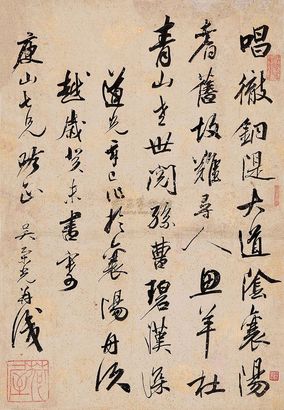 唱徹銅隄大道陰襄陽
耆舊故難尋人思羊杜
青山在世閱孫曹碧漢深
道光辛巳作於襄陽舟次
越歲癸未書寄
山七兄 正 吳榮光并識